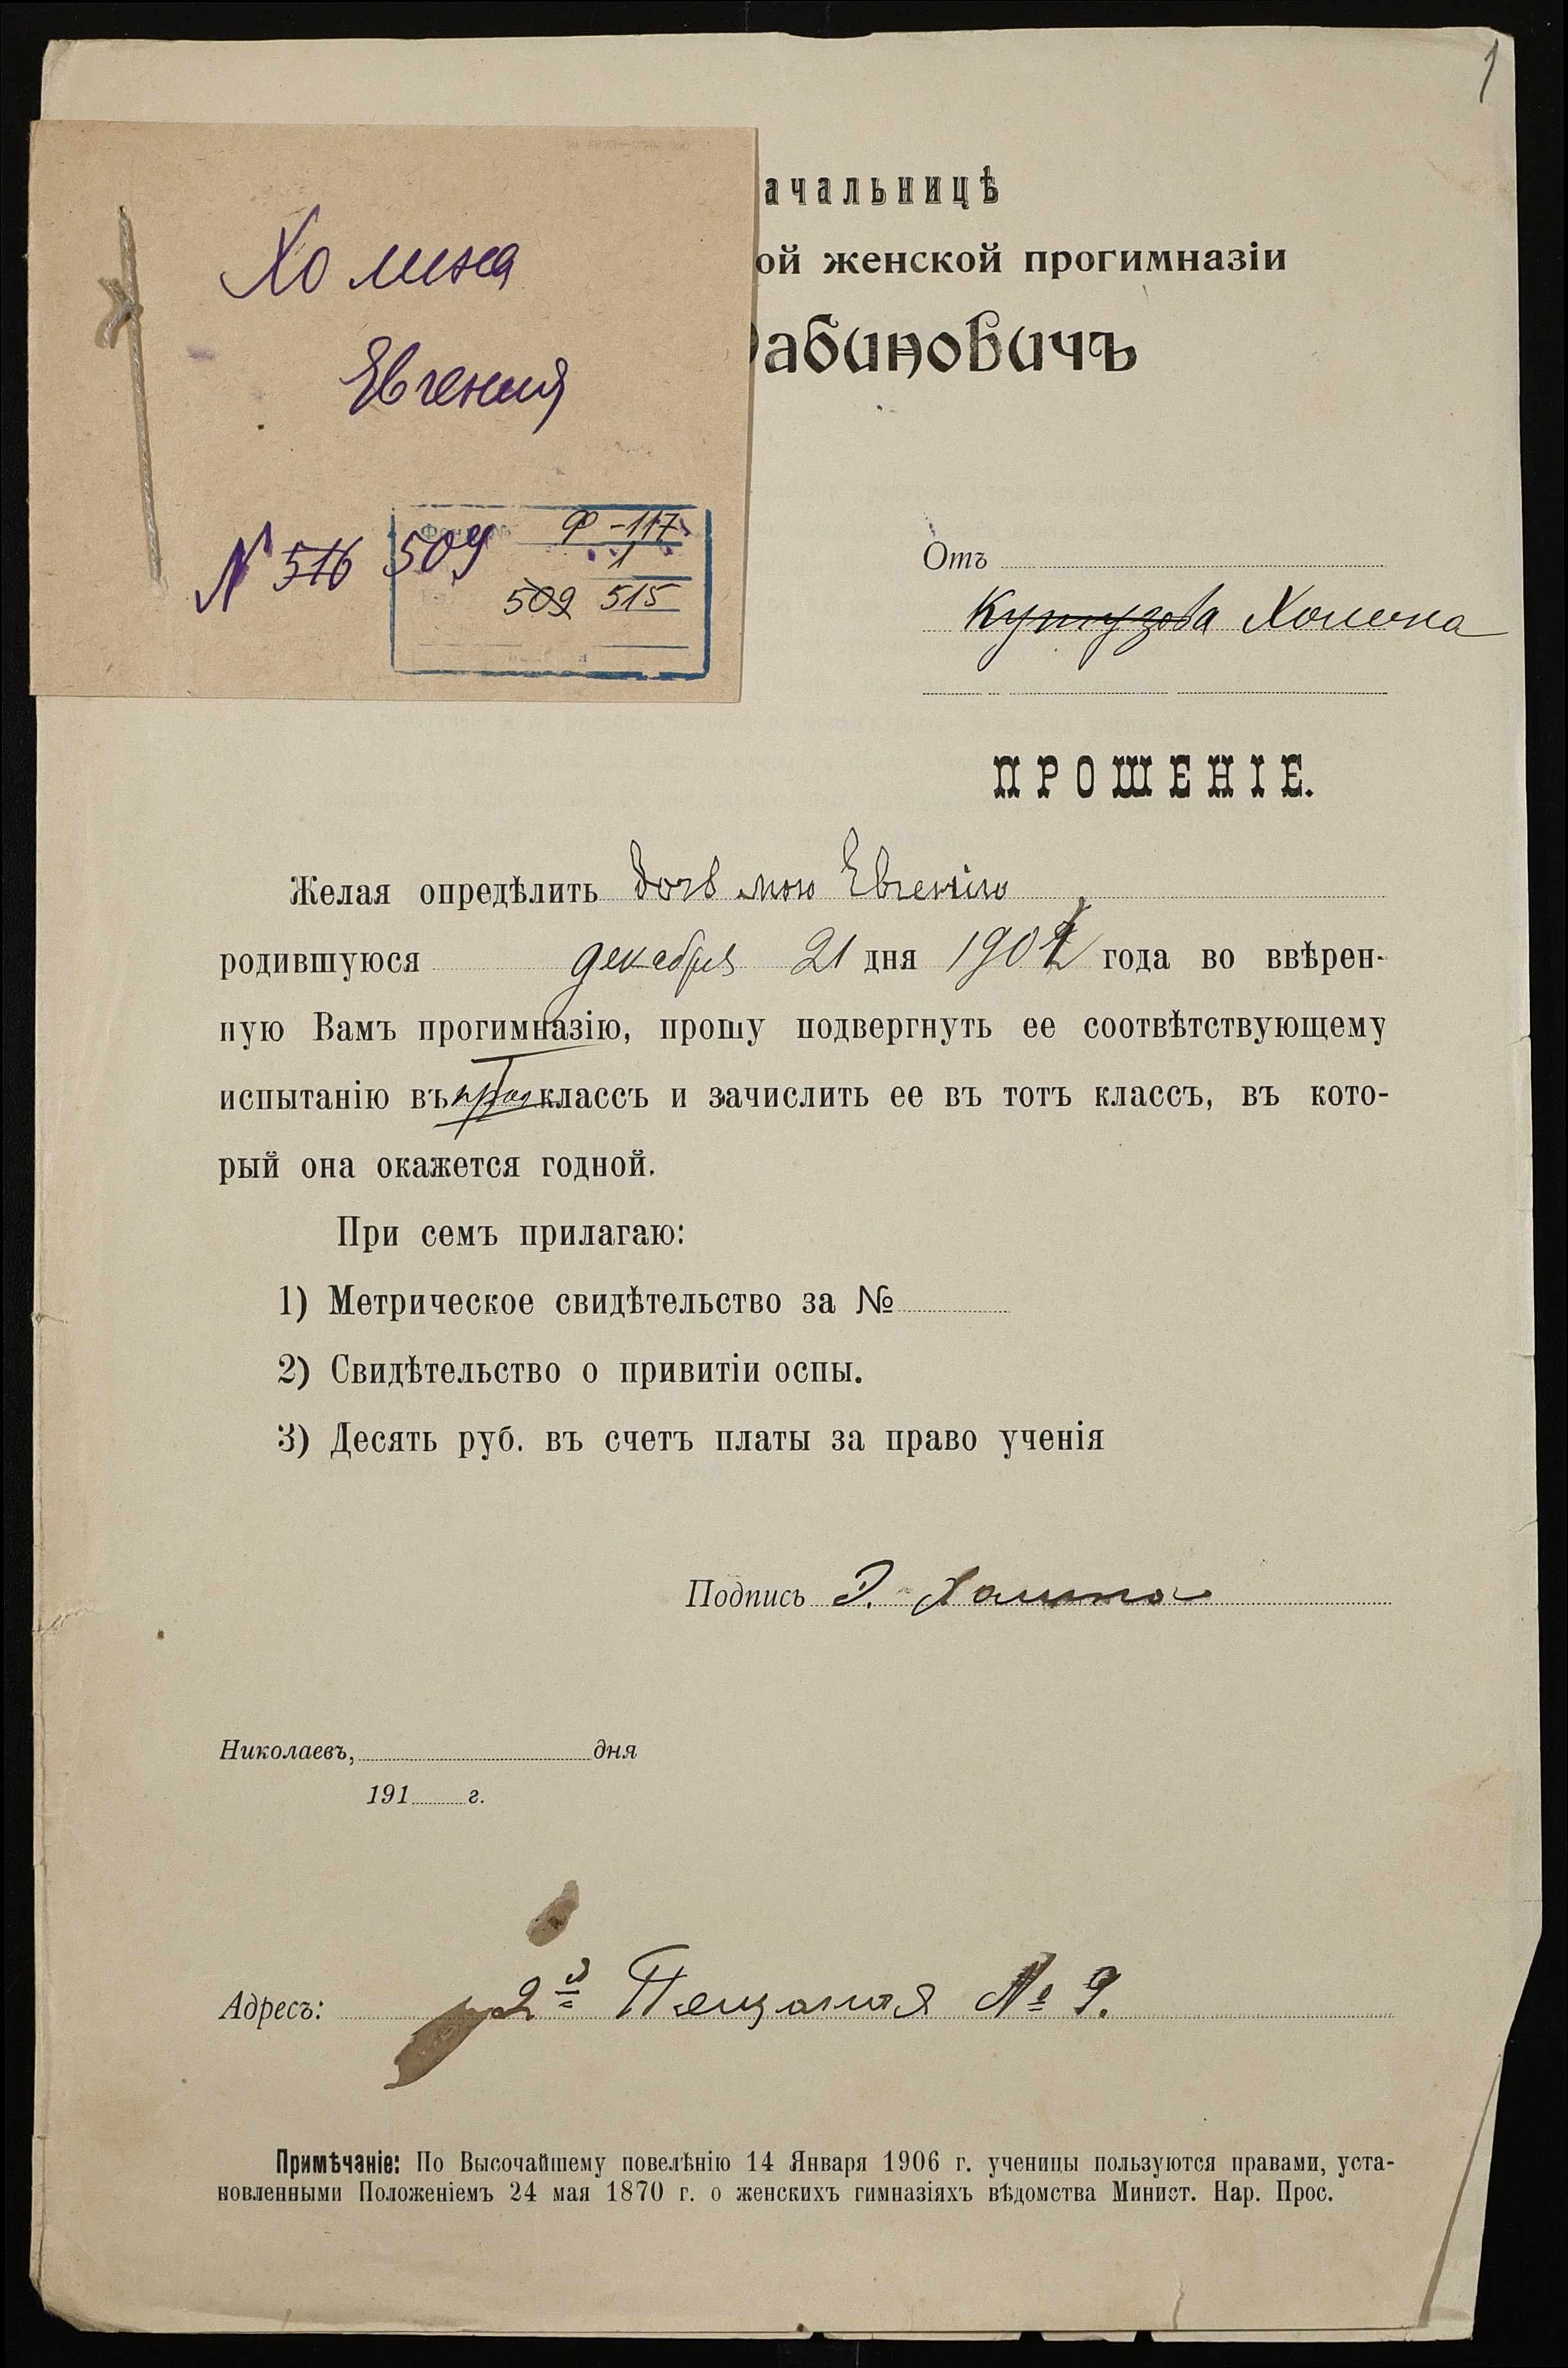 1
Холина
Евгения
N 516 509
Ф-117
1
509 515
ачальницѣ
ой женской прогимназіи
абиновичъ
Отъ
Кутузова Холина
ПРОШЕНІЕ.
Желая опредѣлить дочь мою Евгенію
родившуюся декабря 21 дня 190 года во ввѣрен-
ную Вамъ прогимназію, прошу подвергнуть ее соотвѣтствующему
испытанію въ классъ и зачислить ее въ тотъ классъ, въ кото-
рый она окажется годной.
При семъ прилагаю:
1) Метрическое свидѣтельство за №
2) Свидѣтельство о привитіи оспы.
3) Десять руб. въ счетъ платы за право ученія
Подпись Э. Холина
Николаевъ, дня
191 г.
Адресъ: 2я № 9.
Примѣчаніе: По Высочайшему повелѣнію 14 Января 1906 г. ученицы пользуются правами, уста-
новленными Положеніемъ 24 мая 1870 г. о женскихъ гимназіяхъ вѣдомства Минист. Нар. Прос.